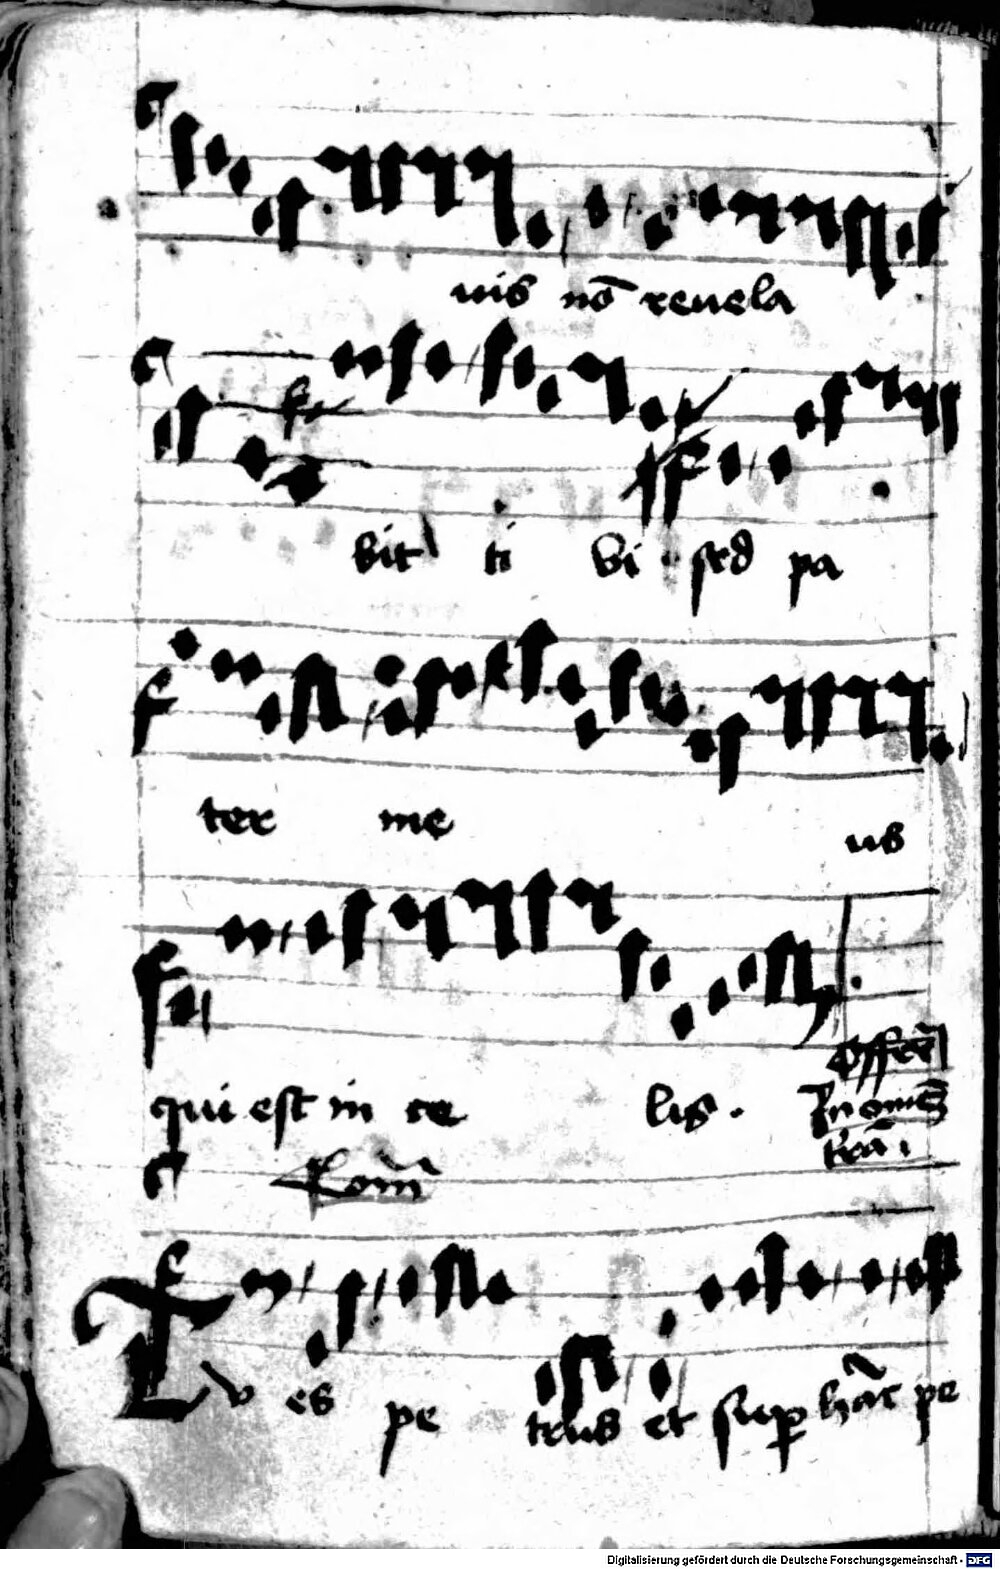 uis nō reuela
bit ti bi sed pa
ter me us
qui est in ce lis.
Offer̄
In omnē
terrā
Com̄
Tu es pe trus et sup hāc pe
Digitalisierung gefördert durch die Deutsche Forschungsgemeinschaft - DFG